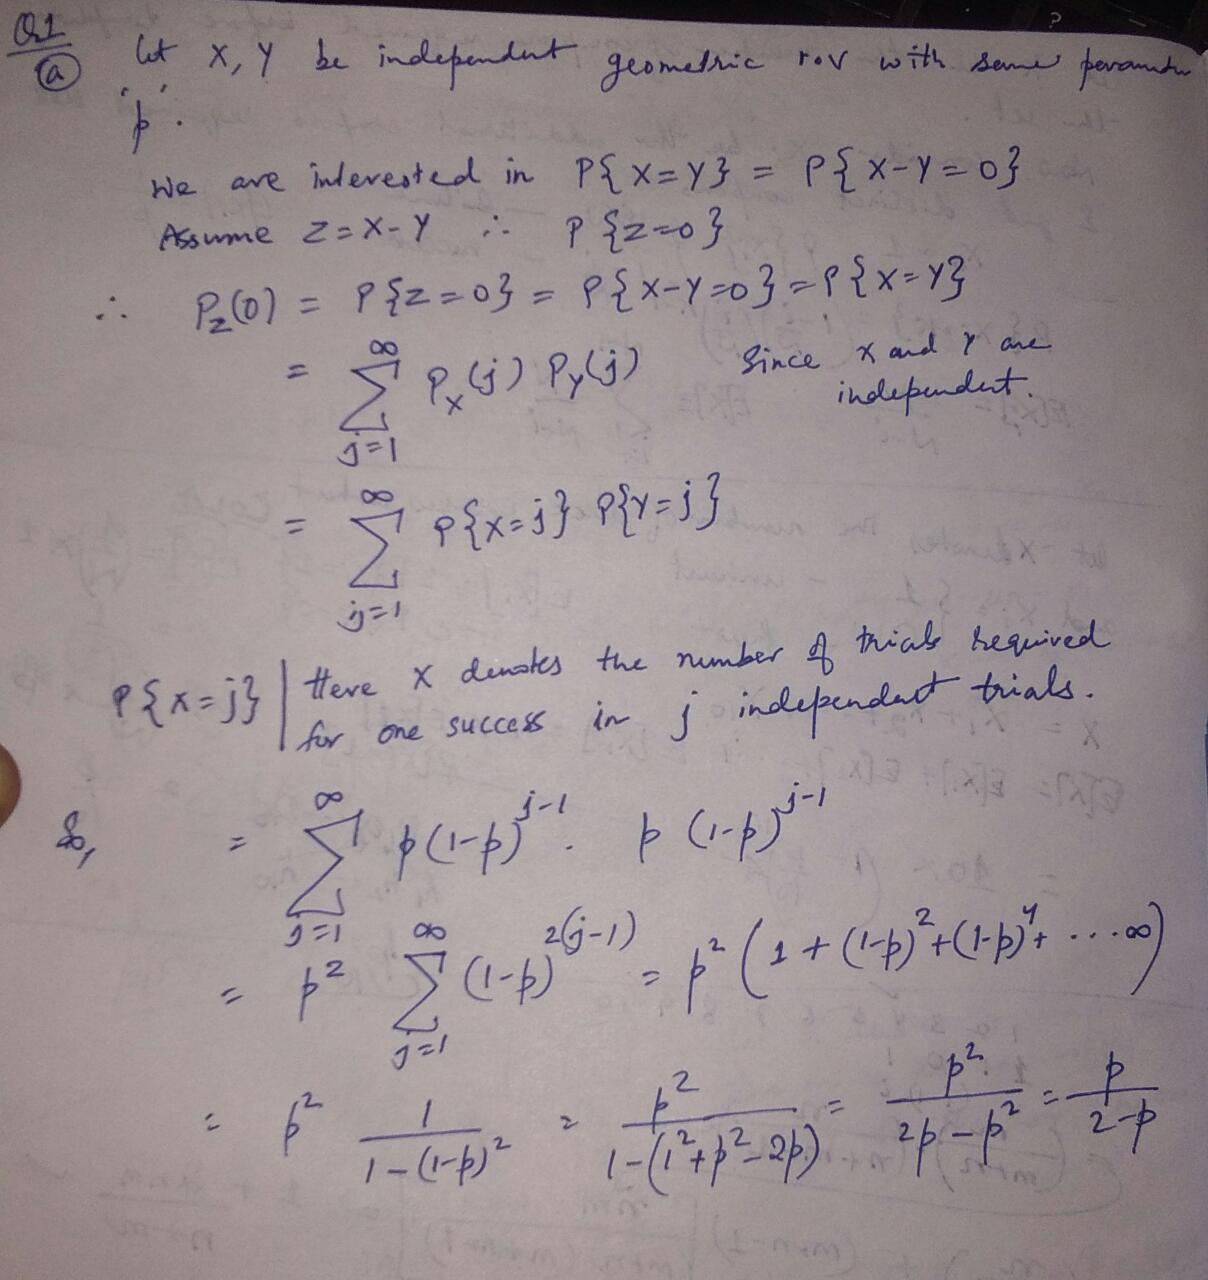 Q1
(a) Let X, Y be independent geometric r.v with same parameter
'p'.
We are interested in P{X=Y} = P{X-Y=0}
Assume Z=X-Y ∴ P{Z=0}
∴ P_Z(0) = P{Z=0} = P{X-Y=0} = P{X=Y}
= ∑_{j=1}^{∞} P_X(j) P_Y(j) Since X and Y are
independent.
= ∑_{j=1}^{∞} P{X=j} P{Y=j}
P{X=j} | Here X denotes the number of trials required
for one success in j independent trials.
So, = ∑_{j=1}^{∞} p(1-p)^{j-1} . p(1-p)^{j-1}
= p² ∑_{j=1}^{∞} (1-p)^{2(j-1)} = p² (1 + (1-p)² + (1-p)⁴ + ...∞)
= p² 1/(1-(1-p)²) = p²/(1-(1²+p²-2p)) = p²/(2p-p²) = p/(2-p)